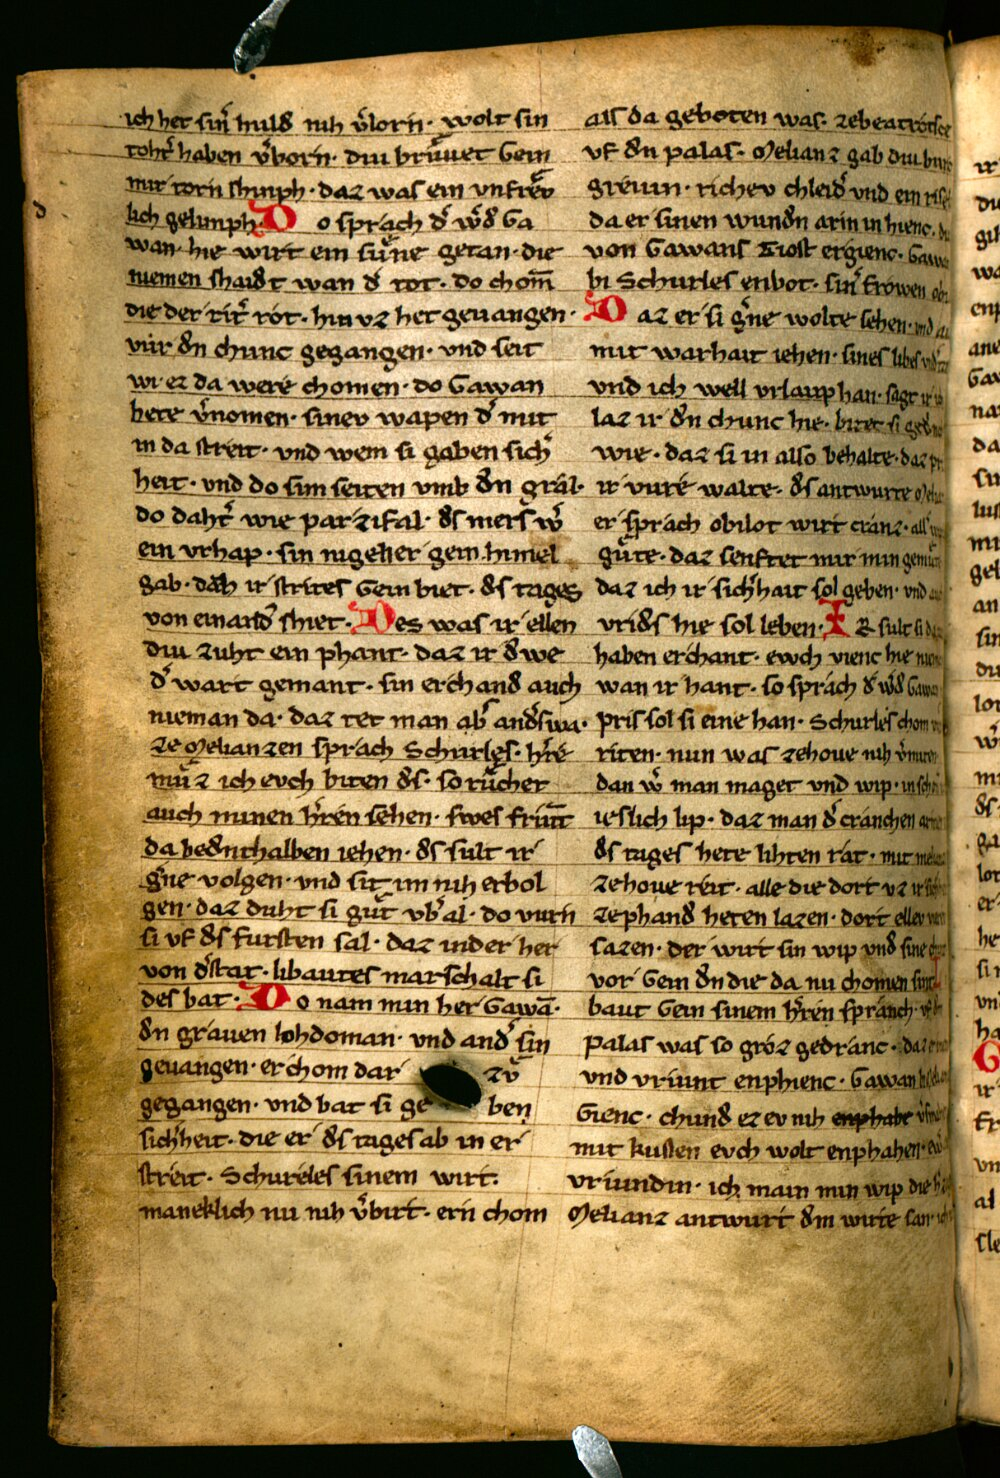 ich het sin̄ huld nih v̓lorn · wolt sin
toht̓ haben v̓born · diu bruͤuet Gein
mir zorn shinph · daz was ein vnfrev
lich gelimph · Do sprach d̓ w̓d Ga
wan · hie wirt ein suͤne getan · die
niemen shaidt wan d̓ tot · do chom̄
die der rit̓ rot · hin vz het geuangen ·
vuͤr dn chunc gegangen · vnd seit
wi ez da were chomen · do Gawan
hete v̓nomen · sinev wapen d̓ mit
in da streit · vnd wem si gaben sich̓
heit · vnd do sim seiten vmb dn gral ·
do daht̓ wie parzifal · ds mers w̓
ein vrhap · sin nigener gein himel
gab · dah ir strites Gein biet · ds tages
von einand̓ shiet · Des was ir ellen
diu zuht ein phant · daz ir dwe
d̓ wart gemant · sin erchand auch
nieman da · daz tet man ab̓ and̓swa ·
ze Melianzen sprach Schurles · h̓re
muͤz ich evch biten ds · so ruͤchet
auch minen h̓ren sehen · swes friūt
da bednthalben iehen · ds sult ir
g̓ne volgen · vnd sit im nih erbol
gen · daz duht si guͤt vb̓al · do vurn
si vf ds fursten sal · daz inder her
von d̓ stat · libautes marschalt si
des bat · Do nam min her Gawā ·
dn grauen lohdoman · vnd and̓ sin
geuangen · er chom dar zuͤ
gegangen · vnd bat si geben
sich̓heit · die er ds tages ab in er
streit · Schureles sinem wirt ·
maneklich nu nih v̓birt · ern chom
als da geboten was · zebearotsce
vf dn palas · Melianz gab diu bur
greuin · richev chleid̓ vnd ein rise
da er sinen wundn arin in hienc ·
von Gawans Tiost ergienc · Gawa
bi Schurles enbot · sin̓ frowen obi
Daz er si g̓ne wolte sehen · vnd
mit warhait iehen · sines libes
vnd ich well vrlaup han · sagt ir
laz ir dn chunc hie · bitet si
wie · daz si in also behalte · daz pr
ir vure walte · ds antwurte
er sprach obilot wirt cranz · all
guͤte · daz senftet mir min gemuͤ
daz ich ir sich̓hait sol geben · vnd
vrids hie sol leben · IR sult si
haben erchant · evch vienc hie niem
wan ir hant · so sprach d̓ w̓d Gawa
pris sol si eine han · Schurles chom
riten · nun was zehoue nih v̓miten
dan w̓ man maget vnd wip · in
ieslich lip · daz man d̓ cranchen
ds tages hete lihten rat · mit
zehoue reit · alle die dort vz
zephand heten lazen · dort ellev
sazen · der wirt sin wip vnd sine
vor Gein dn die da nu chomen sint
baut Gein sinem h̓ren spranch · vf
palas was so groz gedranc · daz
vnd vriunt enphienc · Gawan
Gienc · chund ez ev nih enphahe
mit kussen evch wolt enphahen ·
vriundin · ich main min wip die
Melianz antwurt dm wirte san ·